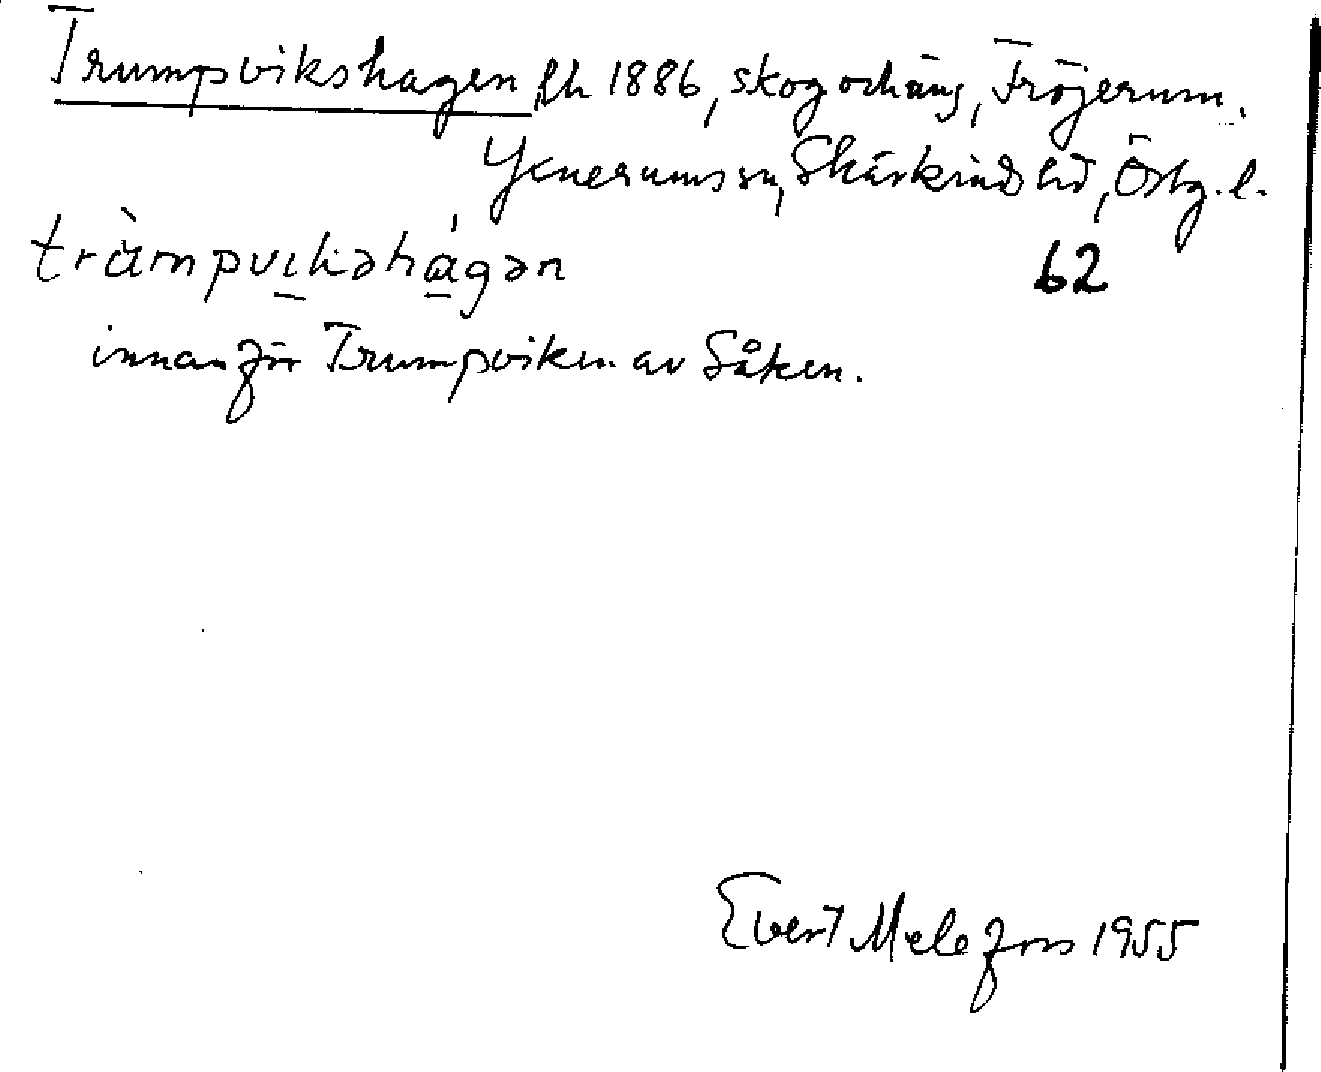 Trumpvikshagen, lh 1886, skog och äng, Fröjerum.
Yxnerums sn, Skärkinds hd, Östg. l.
tràmpvıkəhágən 62
innanför Trumpviken av Såken.
Evert Melefors 1955